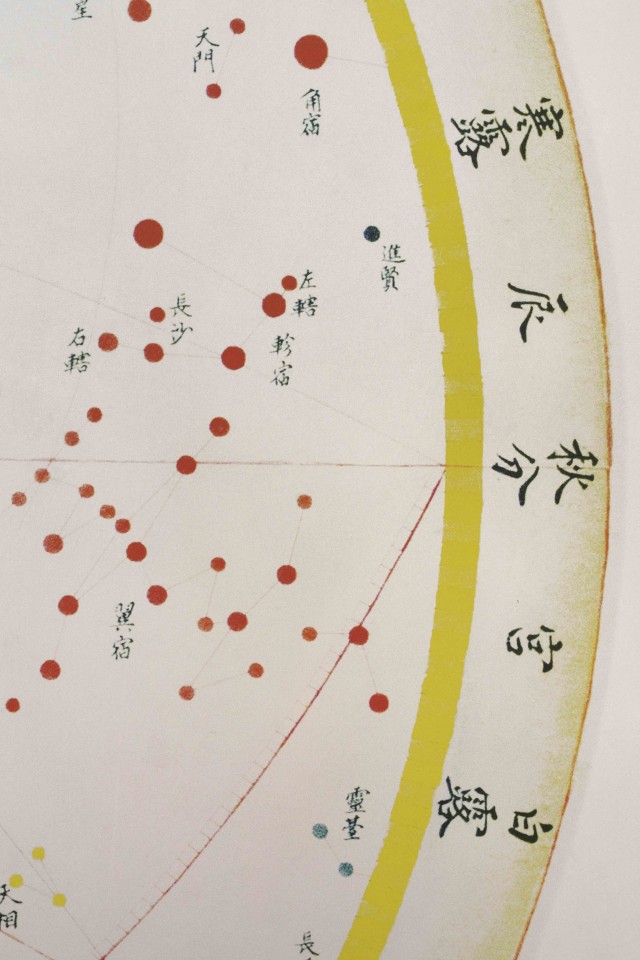 星
天門
角宿
寒露
進賢
辰
左轄
長沙
右轄
軫宿
秋分
翼宿
宮
白露
靈臺
天相
長